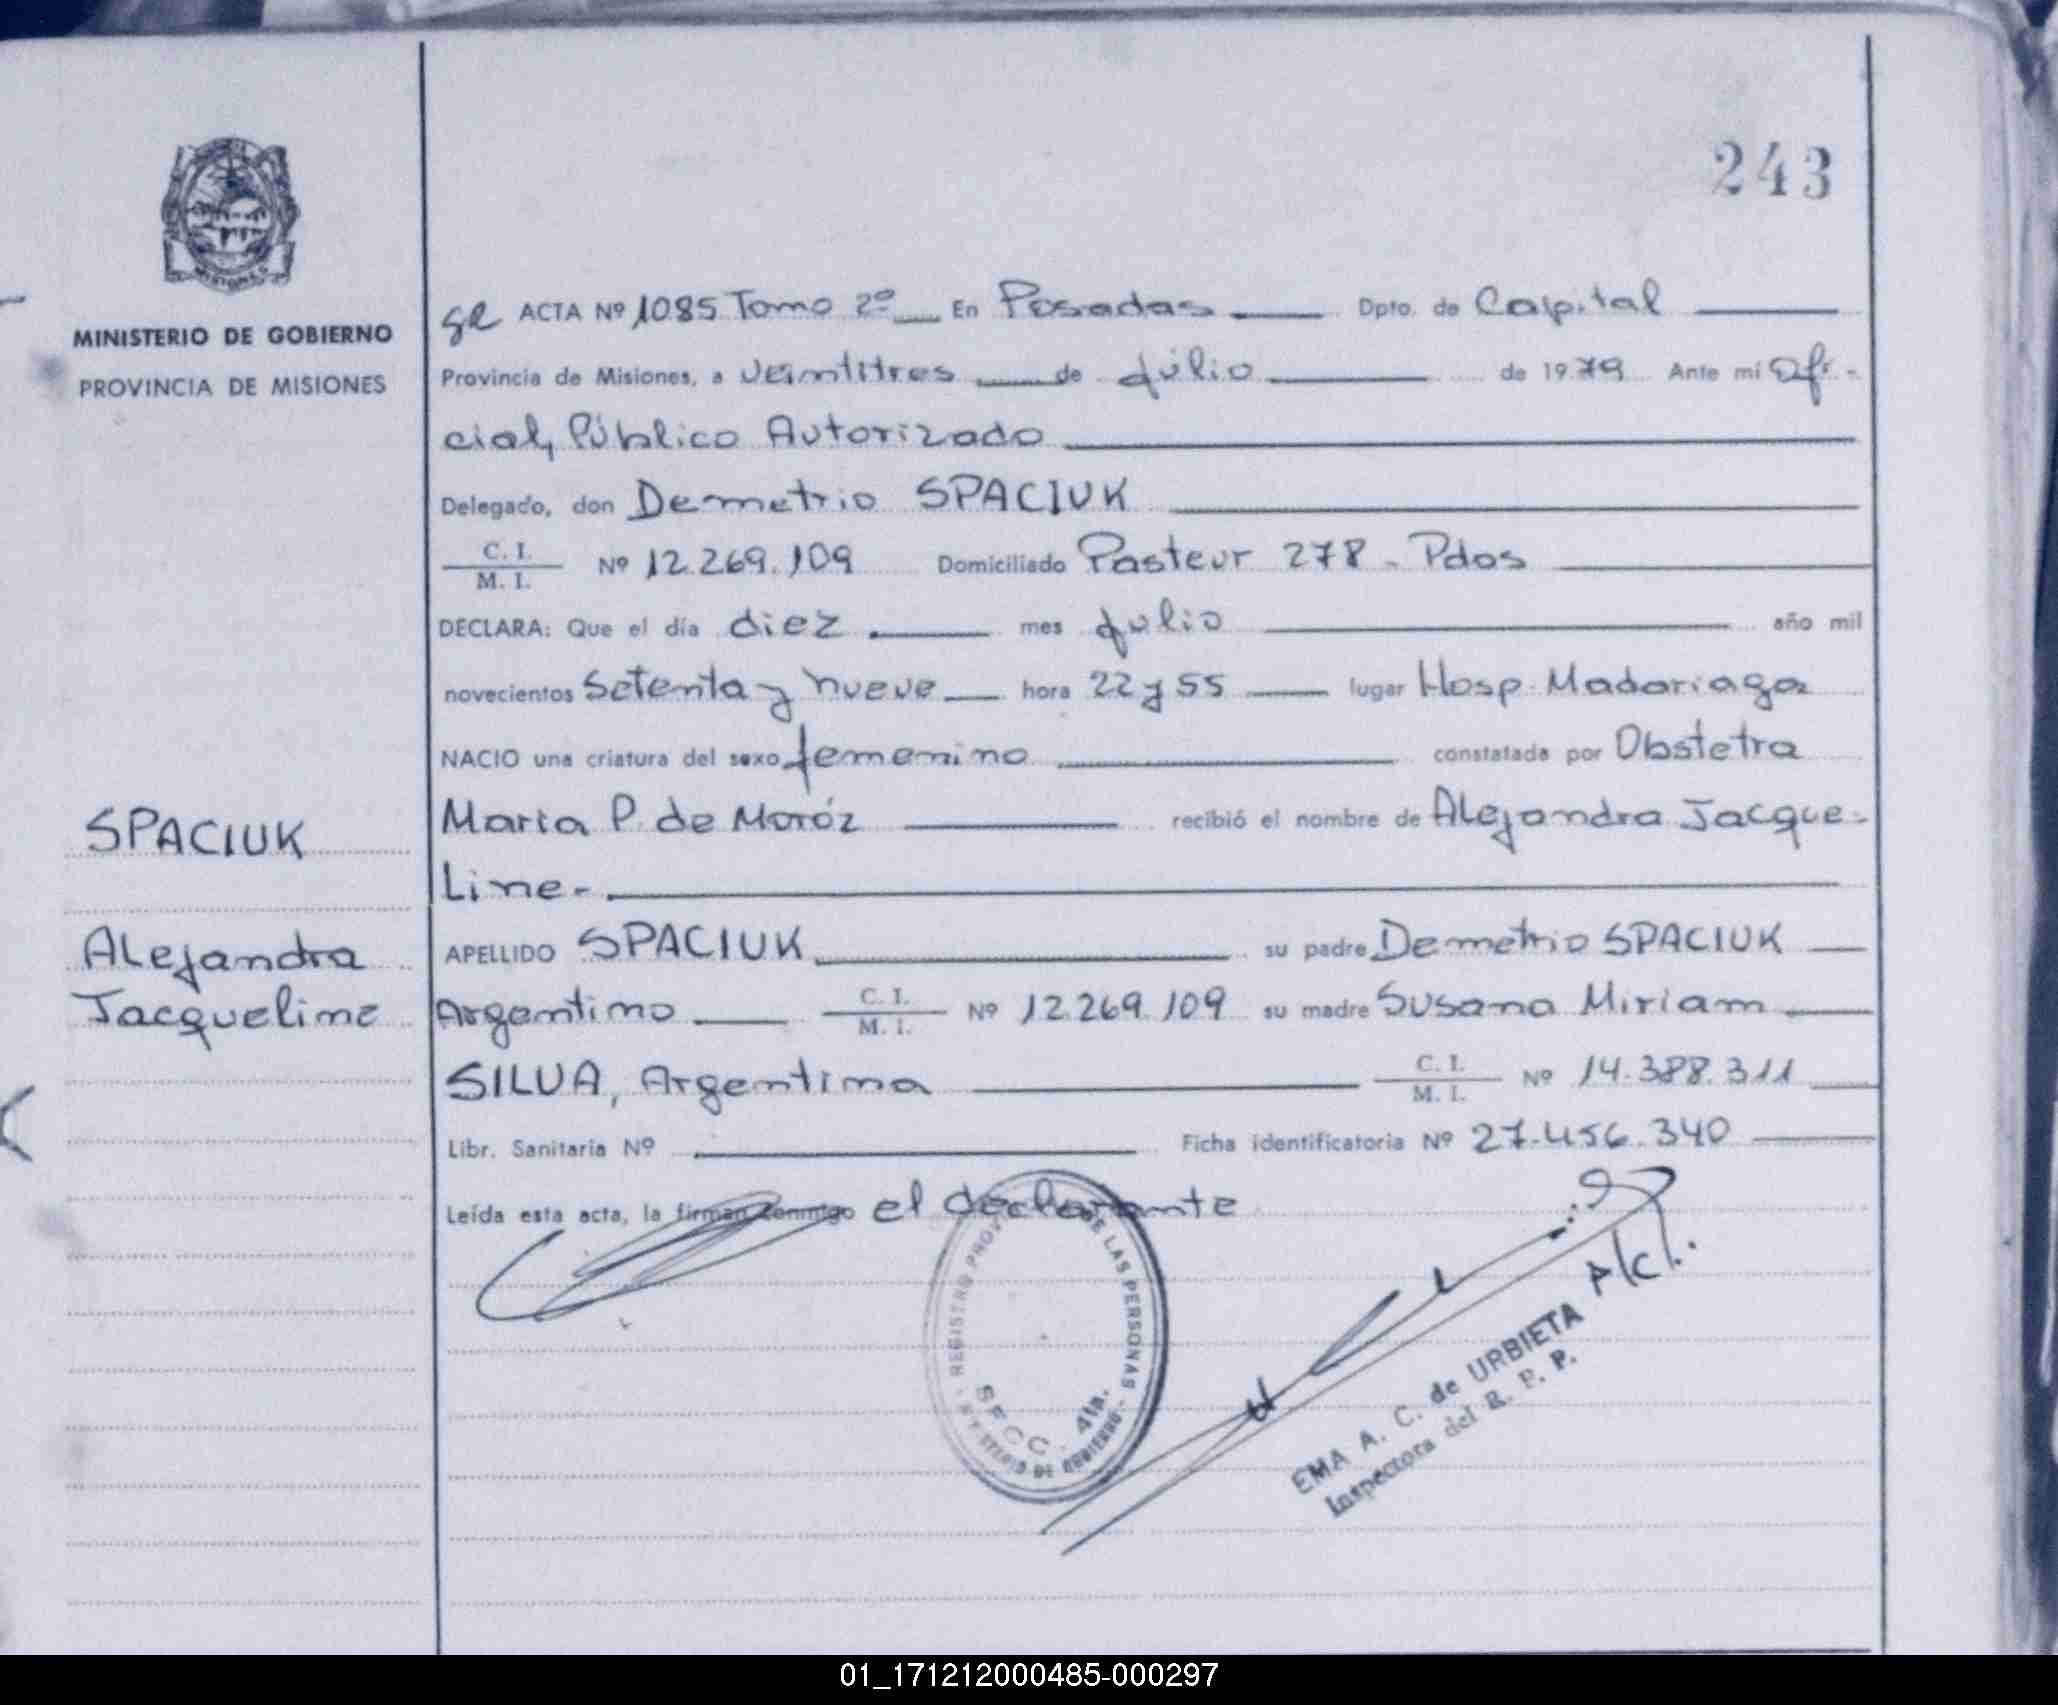 243
MINISTERIO DE GOBIERNO
PROVINCIA DE MISIONES
ACTA Nº 1085 Tomo 2º En Posadas Dpto. de Capital
Provincia de Misiones, a veintitres de julio de 1979 Ante mí Ofi-
cial Público Autorizado
Delegado, don Demetrio SPACIUK
C. I.
M. I.
Nº 12.269.109 Domiciliado Pasteur 278 - Pdas
DECLARA: Que el día diez mes julio año mil
novecientos Setenta y nueve hora 22 y 55 lugar Hosp. Madariaga
NACIO una criatura del sexo femenino constatada por Obstetra
Maria P. de Moróz recibió el nombre de Alejandra Jacque-
Line.-
SPACIUK
Alejandra
Jacqueline
APELLIDO SPACIUK su padre Demetrio SPACIUK
Argentino C. I. M. I. Nº 12.269.109 su madre Susana Miriam
SILVA, Argentina C. I. M. I. Nº 14.388.311
Libr. Sanitaria Nº Ficha identificatoria Nº 27.456.340
Leída esta acta, la firman conmigo el declarante
REGISTRO DE LAS PERSONAS
SECC. 4ta.
DE GOBIERNO
P/C/.
EMA A. C. de URBIETA
Inspectora del R. P. P.
01_171212000485-000297